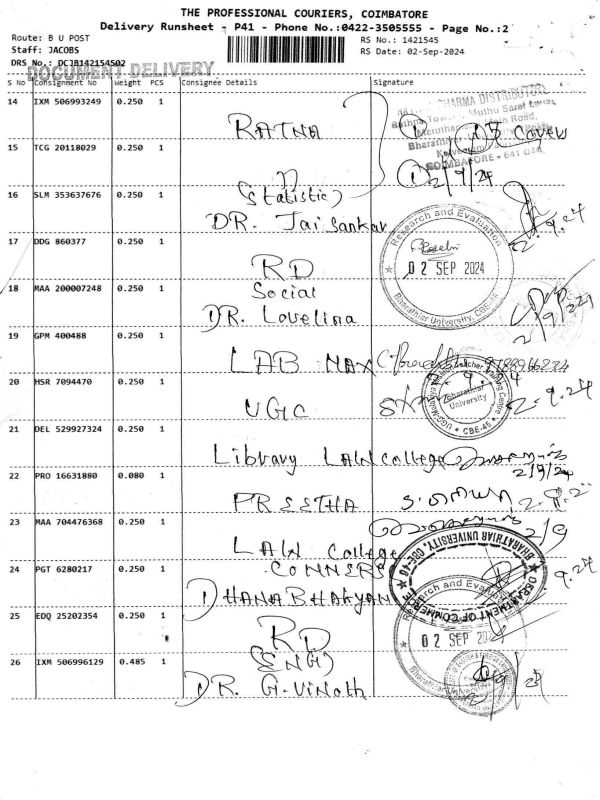 THE PROFESSIONAL COURIERS, COIMBATORE
Delivery Runsheet - P41 - Phone No.:0422-3505555 - Page No.:2
Route: B U POST
Staff: JACOBS
DRS No.: DCJB142154502
RS No.: 1421545
RS Date: 02-Sep-2024
DOCUMENT DELIVERY
S No Consignment No Weight PCS Consignee Details Signature
14 IXM 506993249 0.250 1 RATNA
15 TCG 20118029 0.250 1
2/9/24
16 SLM 353637676 0.250 1 (Statistic)
DR. Jai Sankar
17 DDG 860377 0.250 1 RD
Research and Evaluation
02 SEP 2024
Bharathiar University, CBE-46
18 MAA 200007248 0.250 1 Social
DR. Lovelina
2/9/24
19 GPM 400488 0.250 1 LAB MAX
20 HSR 7094470 0.250 1 UGC
Bharathiar University
CBE-46
2.9.24
21 DEL 529927324 0.250 1 Library LAW college
2/9/24
22 PRO 16631880 0.080 1 PREETHA
23 MAA 704476368 0.250 1 LAW College
2/9
24 PGT 6280217 0.250 1 CONNERS
DHANABHAKYAM
DEPARTMENT OF COMMERCE
BHARATHIAR UNIVERSITY, CBE-46
9.24
25 EDQ 25202354 0.250 1 RD
02 SEP 202
26 IXM 506996129 0.485 1 (ENG)
DR. G. Vinoth